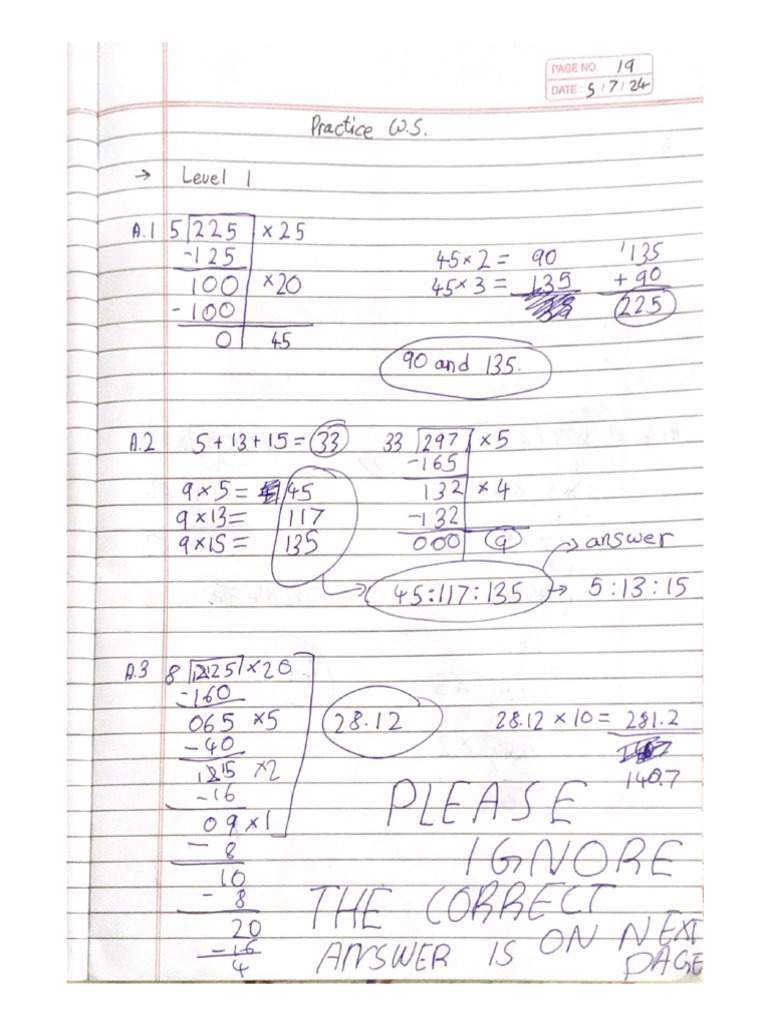 PAGE NO. 19
DATE: 5/7/24
Practice W.S.
→ Level 1
A.1 5 225 × 25
-125
100 ×20
-100
0 45
45×2 = 90
45×3 = 135
135
+90
225
90 and 135.
A.2 5+13+15=33
9×5= 45
9×13= 117
9×15= 135
33 297 ×5
-165
132 ×4
-132
000 9
answer
45:117:135 → 5:13:15
A.3 8 225 ×20
-160
065 ×5
-40
×2
-16
09 ×1
- 8
10
- 8
20
-16
4
28.12
28.12 × 10 = 281.2
140.7
PLEASE
IGNORE
THE CORRECT
ANSWER IS ON NEXT
PAGE